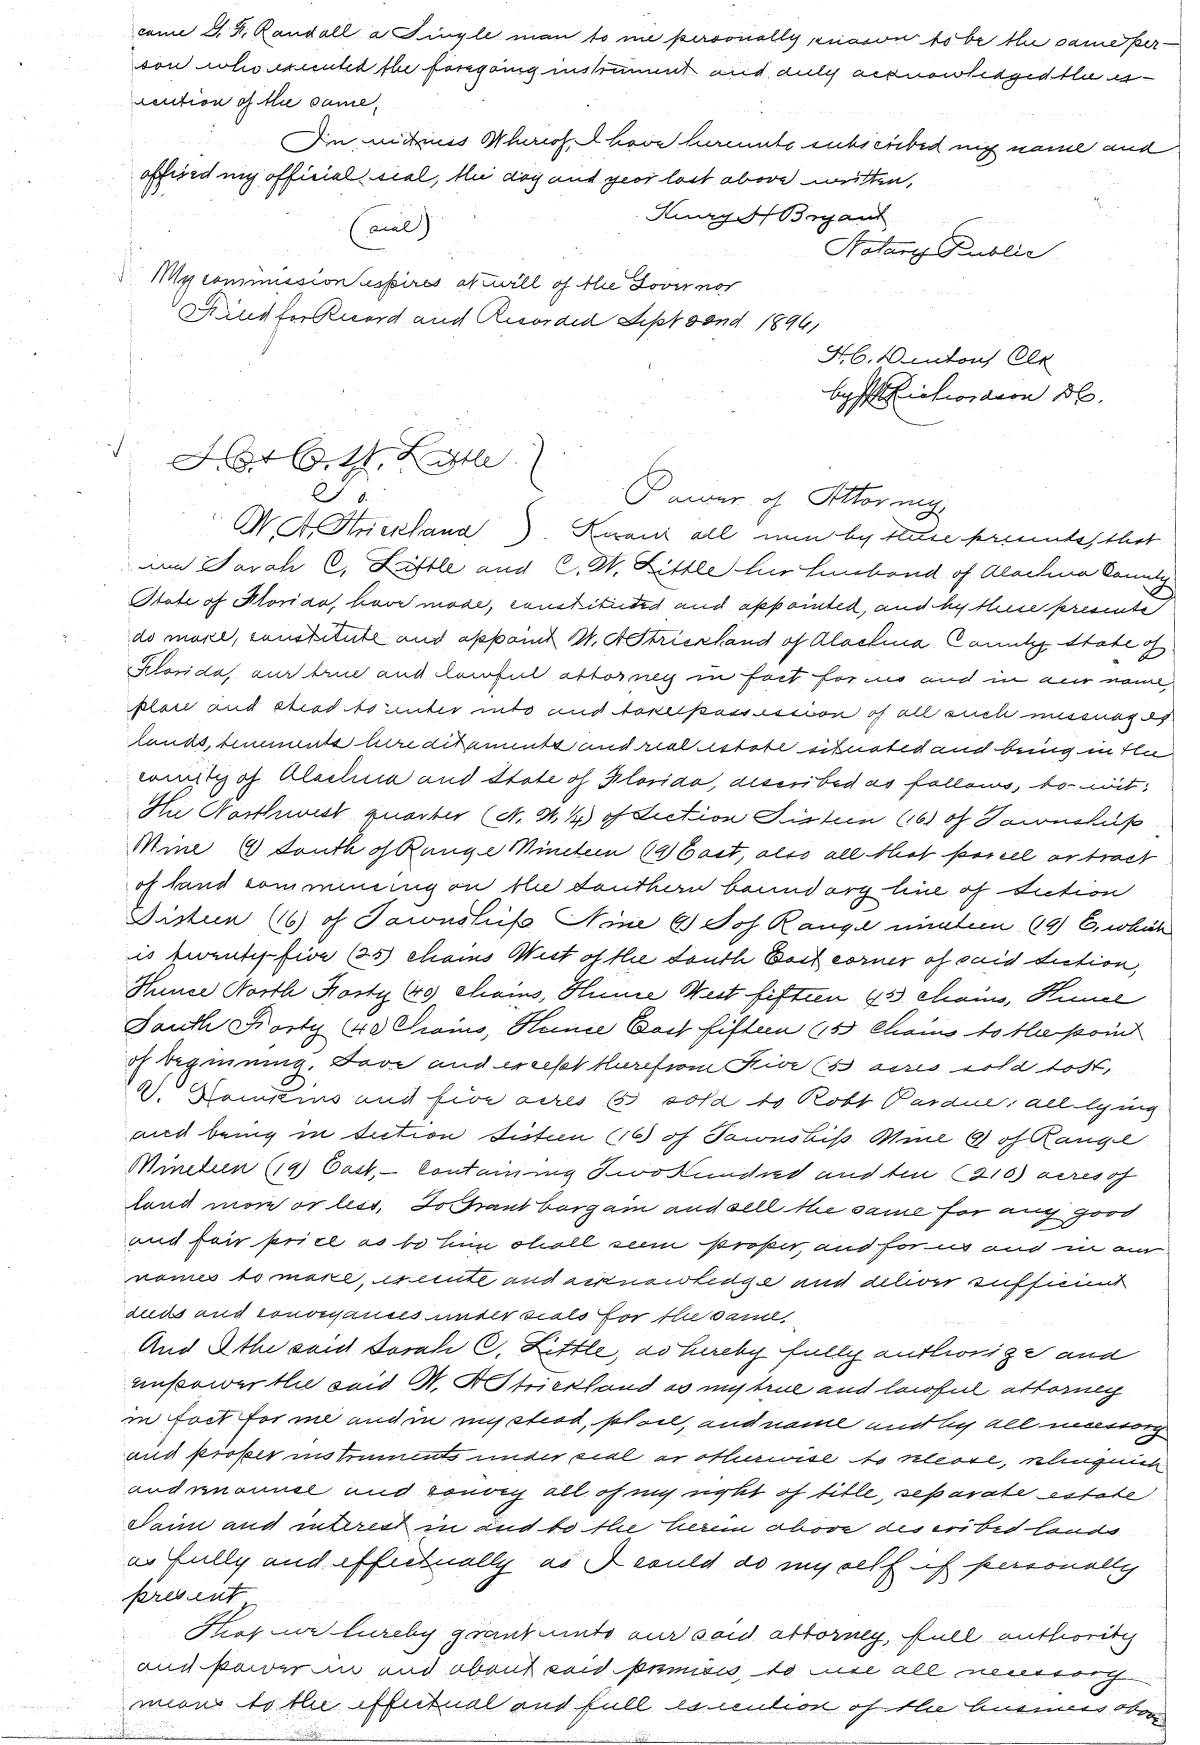 came G. F. Randall a Single man to me personally known to be the same per-
son who executed the foregoing instrument and duly acknowledged the ex-
ecution of the same,
In witness Whereof, I have hereunto subscribed my name and
affixed my official seal, the day and year last above written.
Henry H Bryant
(seal)
Notary Public
My commission expires at will of the Governor
Filed for Record and Recorded Sept 22nd 1894,
H. C. Denton, Clk
by Richardson D C.
S. C. & C. W. Little )
To
Power of Attorney,
W. A. Strickland ) Know all men by these presents, that
we Sarah C. Little and C. W. Little her husband of Alachua County
State of Florida, have made, constituted and appointed, and by these presents
do make, constitute and appoint W. A Strickland of Alachua County State of
Florida, our true and lawful attorney in fact for us and in our name,
place and stead to enter into and take possession of all such messuages
lands, tenements hereditaments and real estate situated and being in the
county of Alachua and State of Florida, described as follows, to-wit:
The Northwest quarter (N. W. 1/4) of Section Sixteen (16) of Township
Nine (9) South of Range Nineteen (19) East, also all that parcel or tract
of land commencing on the Southern boundary line of Section
Sixteen (16) of Township Nine (9) S of Range nineteen (19) E. which
is twenty-five (25) chains West of the South East corner of said Section,
Thence North Forty (40) chains, Thence West fifteen (15) chains, Thence
South Forty (40) Chains, Thence East fifteen (15) Chains to the point
of beginning. Save and except therefrom Five (5) acres sold to
V. Hawkins and five acres (5) sold to Robt Pardue; all lying
and being in Section Sixteen (16) of Township Nine (9) of Range
Nineteen (19) East, - containing Two Hundred and ten (210) acres of
land more or less, To Grant bargain and sell the same for any good
and fair price as to him shall seem proper, and for us and in our
names to make, execute and acknowledge and deliver sufficient
deeds and conveyances under seals for the same.
And I the said Sarah C. Little, do hereby fully authorize and
empower the said W. A Strickland as my true and lawful attorney
in fact for me and in my stead, place, and name and by all necessary
and proper instruments under seal or otherwise to release, relinquish
and renounce and convey all of my right of title, separate estate
claim and interest in and to the herein above described lands
as fully and effectually as I could do myself if personally
present,
That we hereby grant unto our said attorney, full authority
and power in and about said premises, to use all necessary
means to the effectual and full execution of the business above